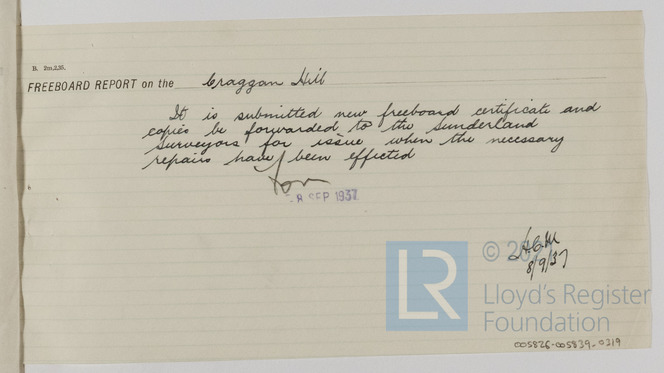 B. 2m.2.35.
FREEBOARD REPORT on the Craggan Hill
It is submitted new freeboard certificate and
copies be forwarded to the Sunderland
Surveyors for issue when the necessary
repairs have been effected
8 SEP 1937
8/9/37
©
LR
Lloyd's Register
Foundation
005826-005839-0319